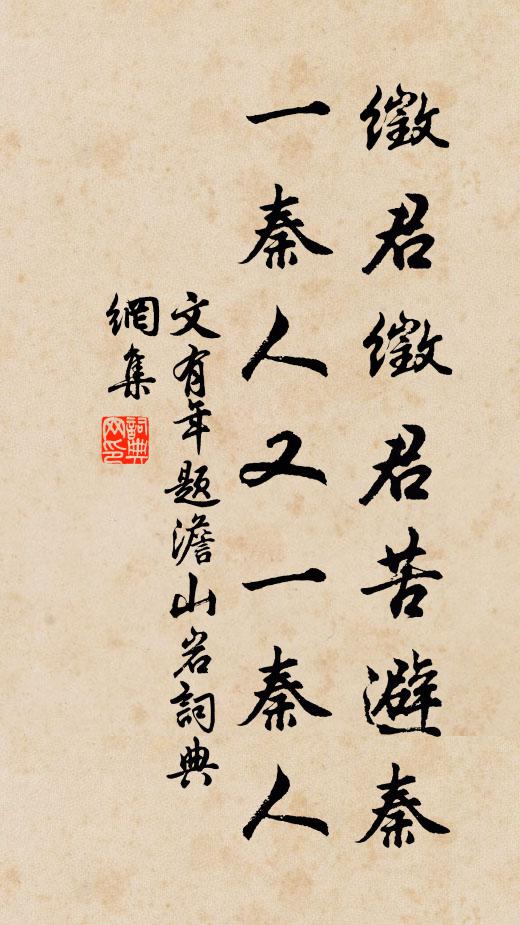 徵君徵君苦避秦
一秦人又一秦人
文有年题澹山岩詞典
網集
詞典
网印